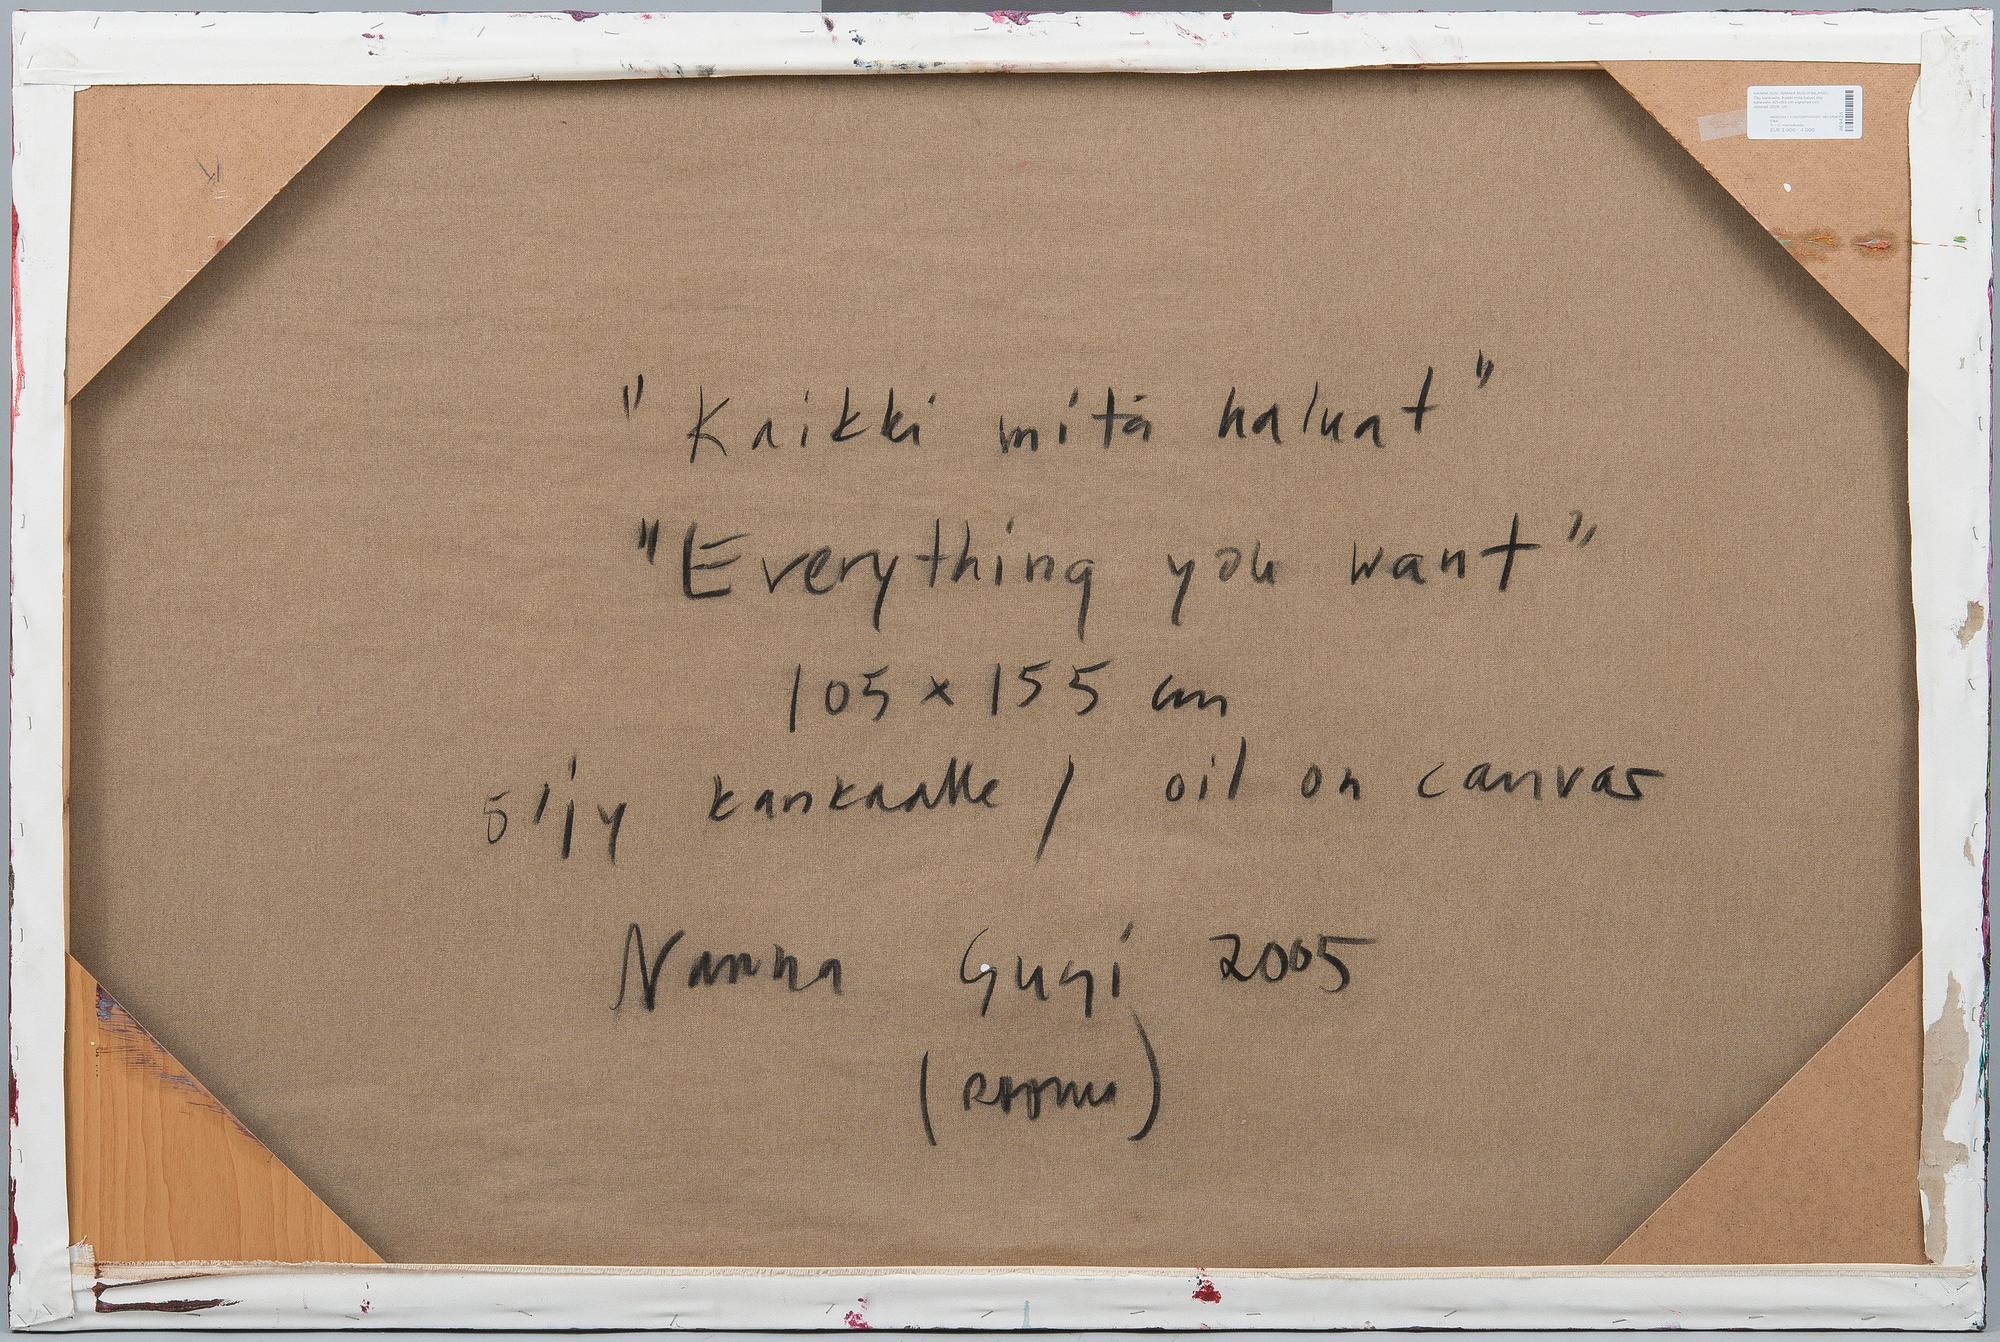 "Kaikki mitä haluat"
"Everything you want"
105 x 155 cm
öljy kankaalle / oil on canvas
Nanna Susi 2005
(rooma)
EUR 3 000 - 4 000